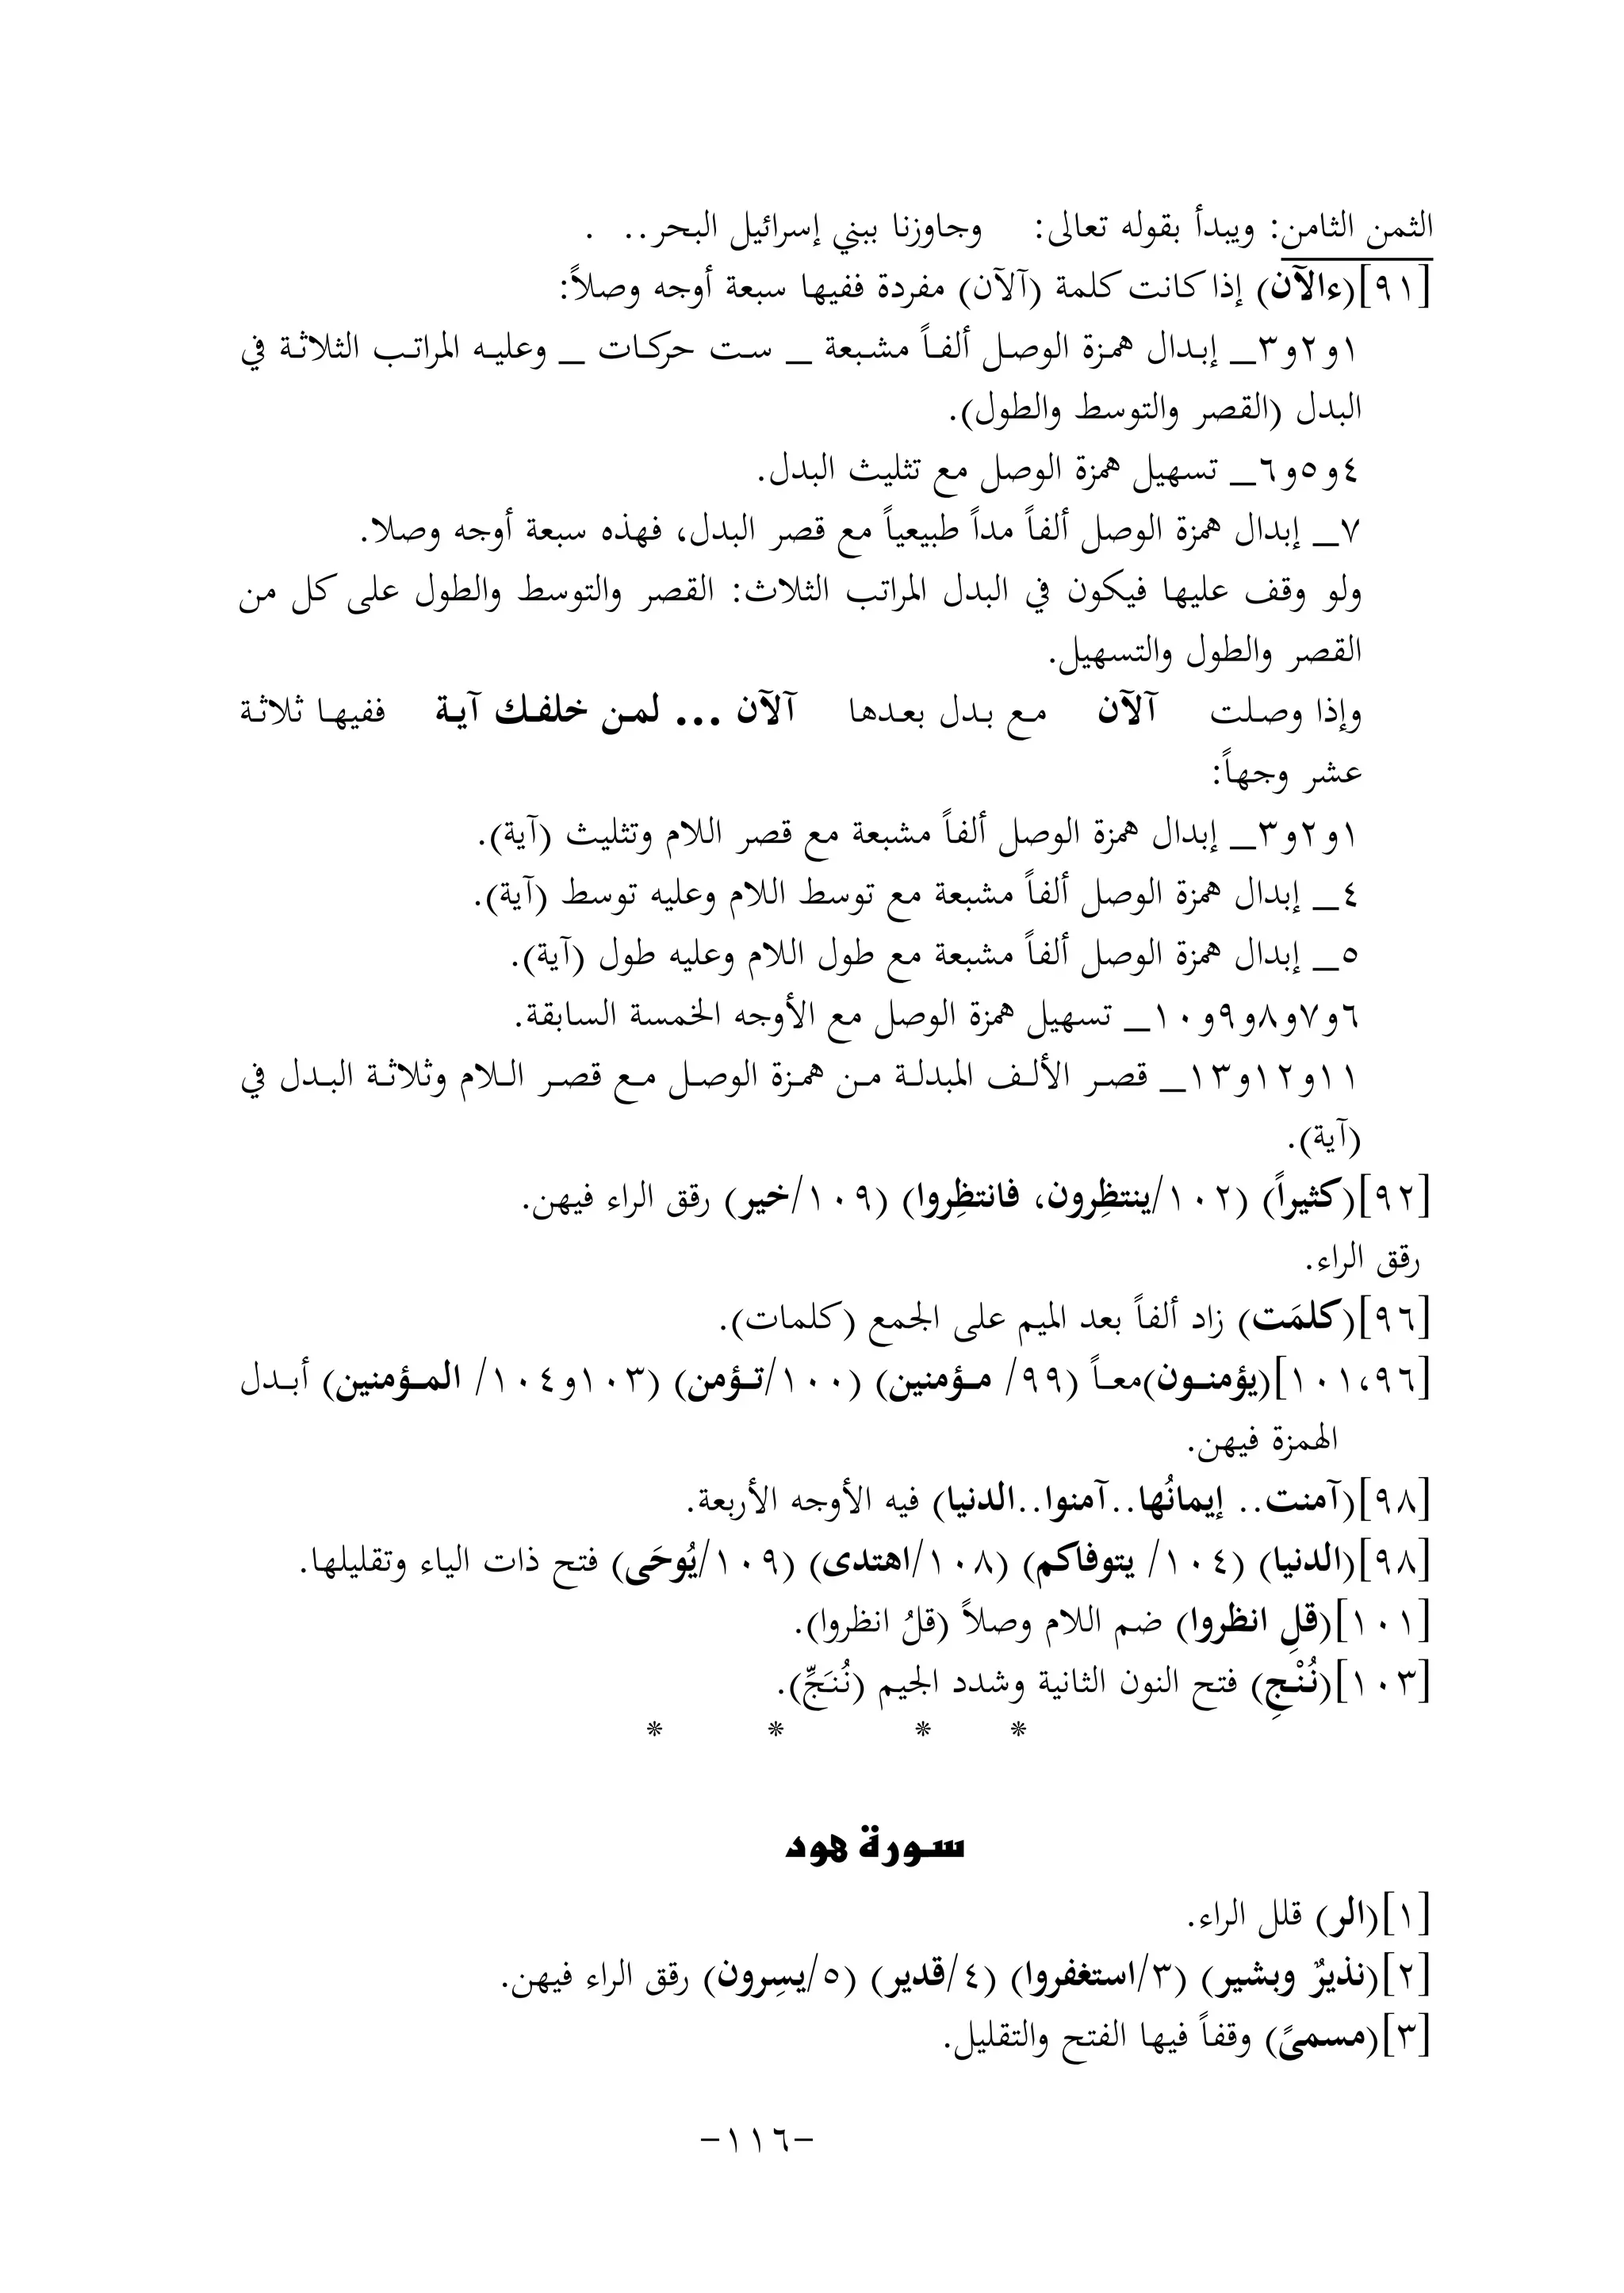 الثمن الثامن: ويبدأ بقوله تعالى: وجاوزنا ببني إسرائيل البحر.. .
[٩١](ءالآن) إذا كانت كلمة (آلآن) مفردة ففيها سبعة أوجه وصلاً:
١و٢و٣_ إبدال همزة الوصل ألفاً مشبعة _ ست حركات _ وعليه المراتب الثلاثة في
البدل (القصر والتوسط والطول).
٤و٥و٦_ تسهيل همزة الوصل مع تثليث البدل.
٧_ إبدال همزة الوصل ألفاً مداً طبيعياً مع قصر البدل، فهذه سبعة أوجه وصلا.
ولو وقف عليها فيكون في البدل المراتب الثلاث: القصر والتوسط والطول على كل من
القصر والطول والتسهيل.
وإذا وصلت آلآن مع بدل بعدها آلآن ... لمن خلفك آية ففيها ثلاثة
عشر وجهاً:
١و٢و٣_ إبدال همزة الوصل ألفاً مشبعة مع قصر اللام وتثليث (آية).
٤_ إبدال همزة الوصل ألفاً مشبعة مع توسط اللام وعليه توسط (آية).
٥_ إبدال همزة الوصل ألفاً مشبعة مع طول اللام وعليه طول (آية).
٦و٧و٨و٩و١٠_ تسهيل همزة الوصل مع الأوجه الخمسة السابقة.
١١و١٢و١٣_ قصر الألف المبدلة من همزة الوصل مع قصر اللام وثلاثة البدل في
(آية).
[٩٢](كثيراً) (١٠٢/ينتظِرون، فانتظِروا) (١٠٩/خير) رقق الراء فيهن.
رقق الراء.
[٩٦](كلمَت) زاد ألفاً بعد الميم على الجمع (كلمات).
[١٠١،٩٦](يؤمنون)معاً (٩٩/ مؤمنين) (١٠٠/تؤمن) (١٠٣و١٠٤/ المؤمنين) أبدل
الهمزة فيهن.
[٩٨](آمنت.. إيمانُها..آمنوا..الدنيا) فيه الأوجه الأربعة.
[٩٨](الدنيا) (١٠٤/ يتوفاكم) (١٠٨/اهتدى) (١٠٩/يُوحَى) فتح ذات الياء وتقليلها.
[١٠١](قلِ انظروا) ضم اللام وصلاً (قلُ انظروا).
[١٠٣](نُنْجِ) فتح النون الثانية وشدد الجيم (نُنَجِّ).
* * * *
سورة هود
[١](الر) قلل الراء.
[٢](نذيرٌ وبشير) (٣/استغفروا) (٤/قدير) (٥/يسِرون) رقق الراء فيهن.
[٣](مسمىً) وقفاً فيها الفتح والتقليل.
-١١٦-